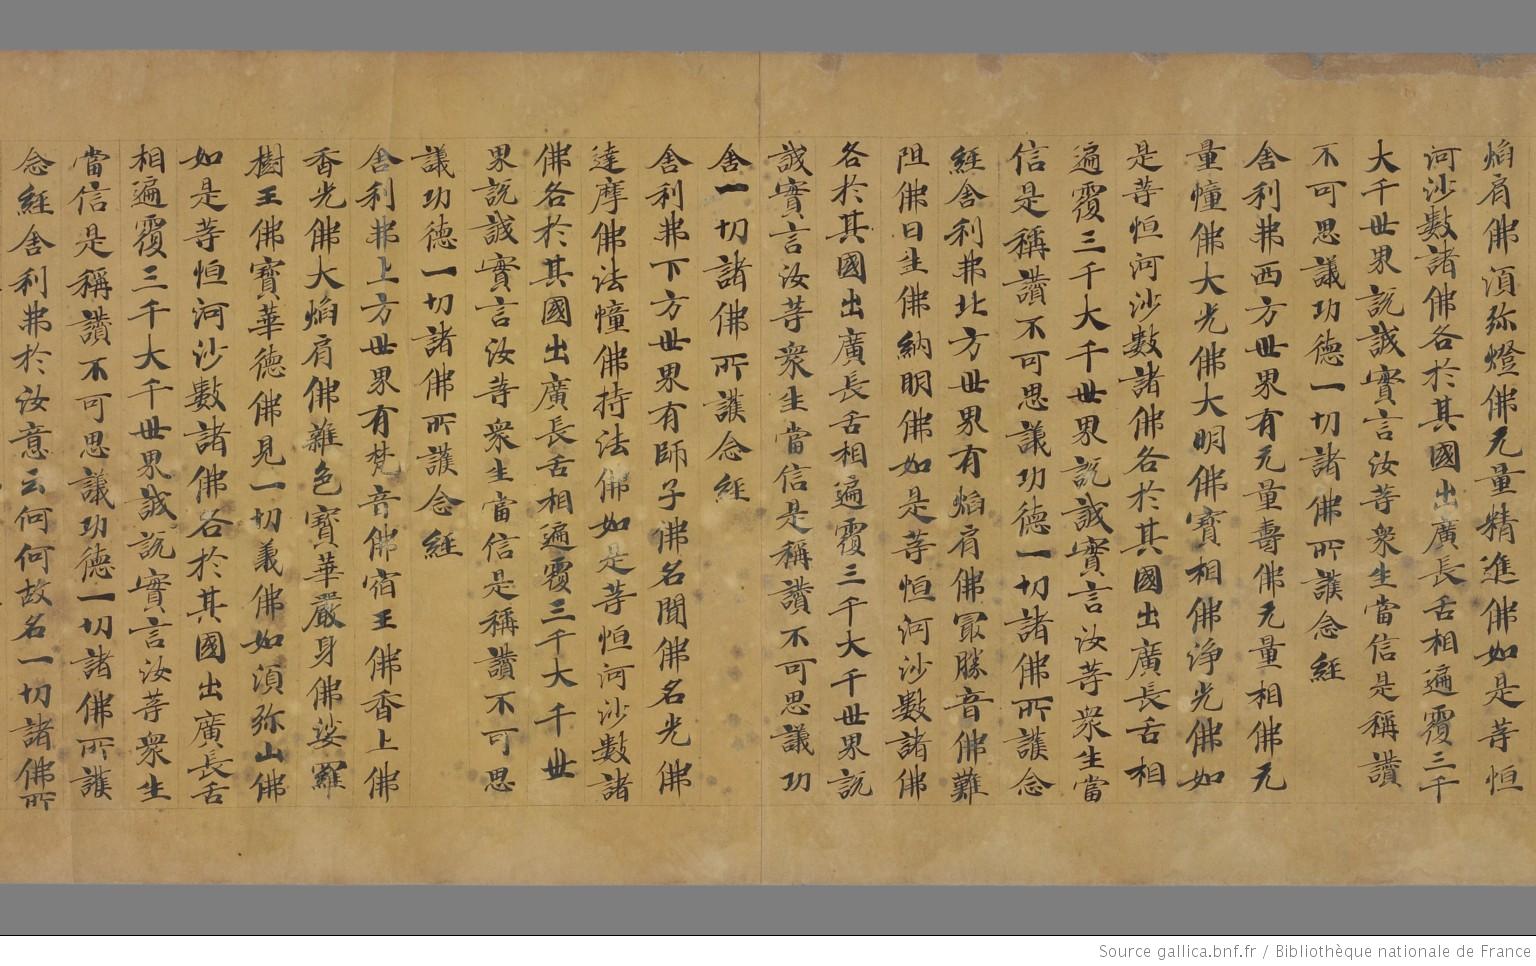 焰肩佛湏弥燈佛无量精進佛如是䓁恒
河沙數諸佛各扵其國出廣長舌相遍覆三千
大千世界說誠實言汝䓁衆生當信是稱讚
不可思議功德一切諸佛所護念經
舍利弗西方世界有无量壽佛无量相佛无
量幢佛大光佛大明佛寶相佛淨光佛如
是䓁恒河沙數諸佛各扵其國出廣長舌相
遍覆三千大千世界說誠實言汝䓁衆生當
信是稱讚不可思議功德一切諸佛所護念
經舍利弗北方世界有焰肩佛冣勝音佛難
阻佛日生佛納明佛如是䓁恒河沙數諸佛
各扵其國出廣長舌相遍覆三千大千世界說
誠實言汝䓁衆生當信是稱讚不可思議功
舍一切諸佛所護念經
舍利弗下方世界有師子佛名聞佛名光佛
達摩佛法幢佛持法佛如是䓁恒河沙數諸
佛各扵其國出廣長舌相遍覆三千大千世
界說誠實言汝䓁衆生當信是稱讚不可思
議功德一切諸佛所護念經
舍利弗上方世界有梵音佛宿王佛香上佛
香光佛大焰肩佛雜色寶華嚴身佛娑羅
樹王佛寶華德佛見一切義佛如湏弥山佛
如是䓁恒河沙數諸佛各扵其國出廣長舌
相遍覆三千大千世界誠說實言汝䓁衆生
當信是稱讚不可思議功德一切諸佛所護
念經舍利弗扵汝意云何何故名一切諸佛所
Source gallica.bnf.fr / Bibliothèque nationale de France